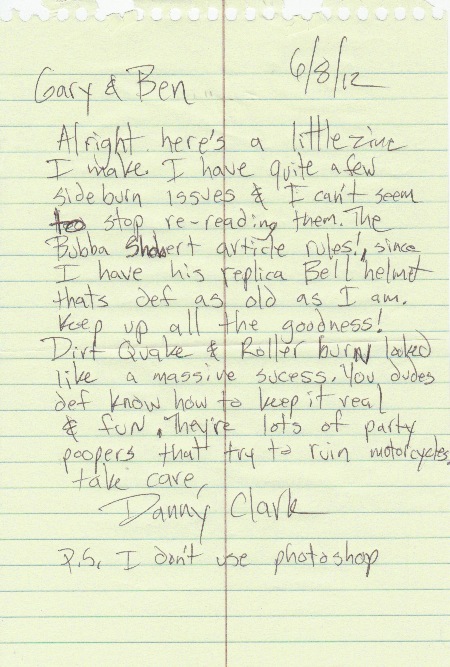 6/8/12
Gary & Ben
Alright here's a little zine
I make. I have quite a few
sideburn issues & I can't seem
to stop re-reading them. The
Bubba Shobert article rules!, since
I have his replica Bell helmet
thats def as old as I am.
Keep up all the goodness!
Dirt Quake & Roller burn looked
like a massive sucess. You dudes
def know how to keep it real
& fun. They're lots of party
poopers that try to ruin motorcycles.
take care,
Danny Clark
P.S. I don't use photoshop